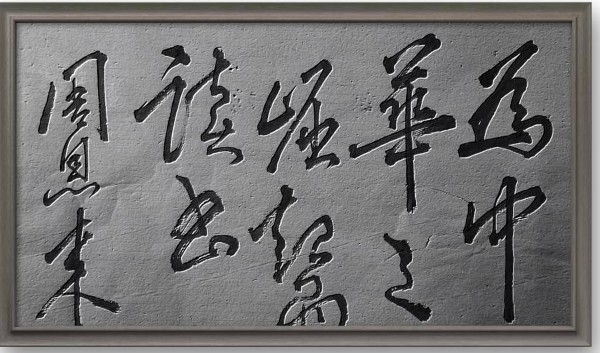 為中
華之
崛起而
讀书
周恩来